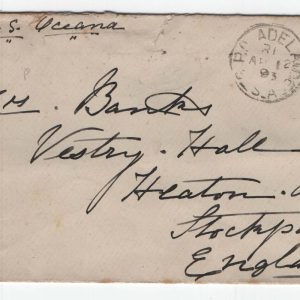 S. Oceana
G.P.O. ADELA
R1
AP 12
93
S.A
Banks
Vestry Hall
Heaton
Stockp
Engla